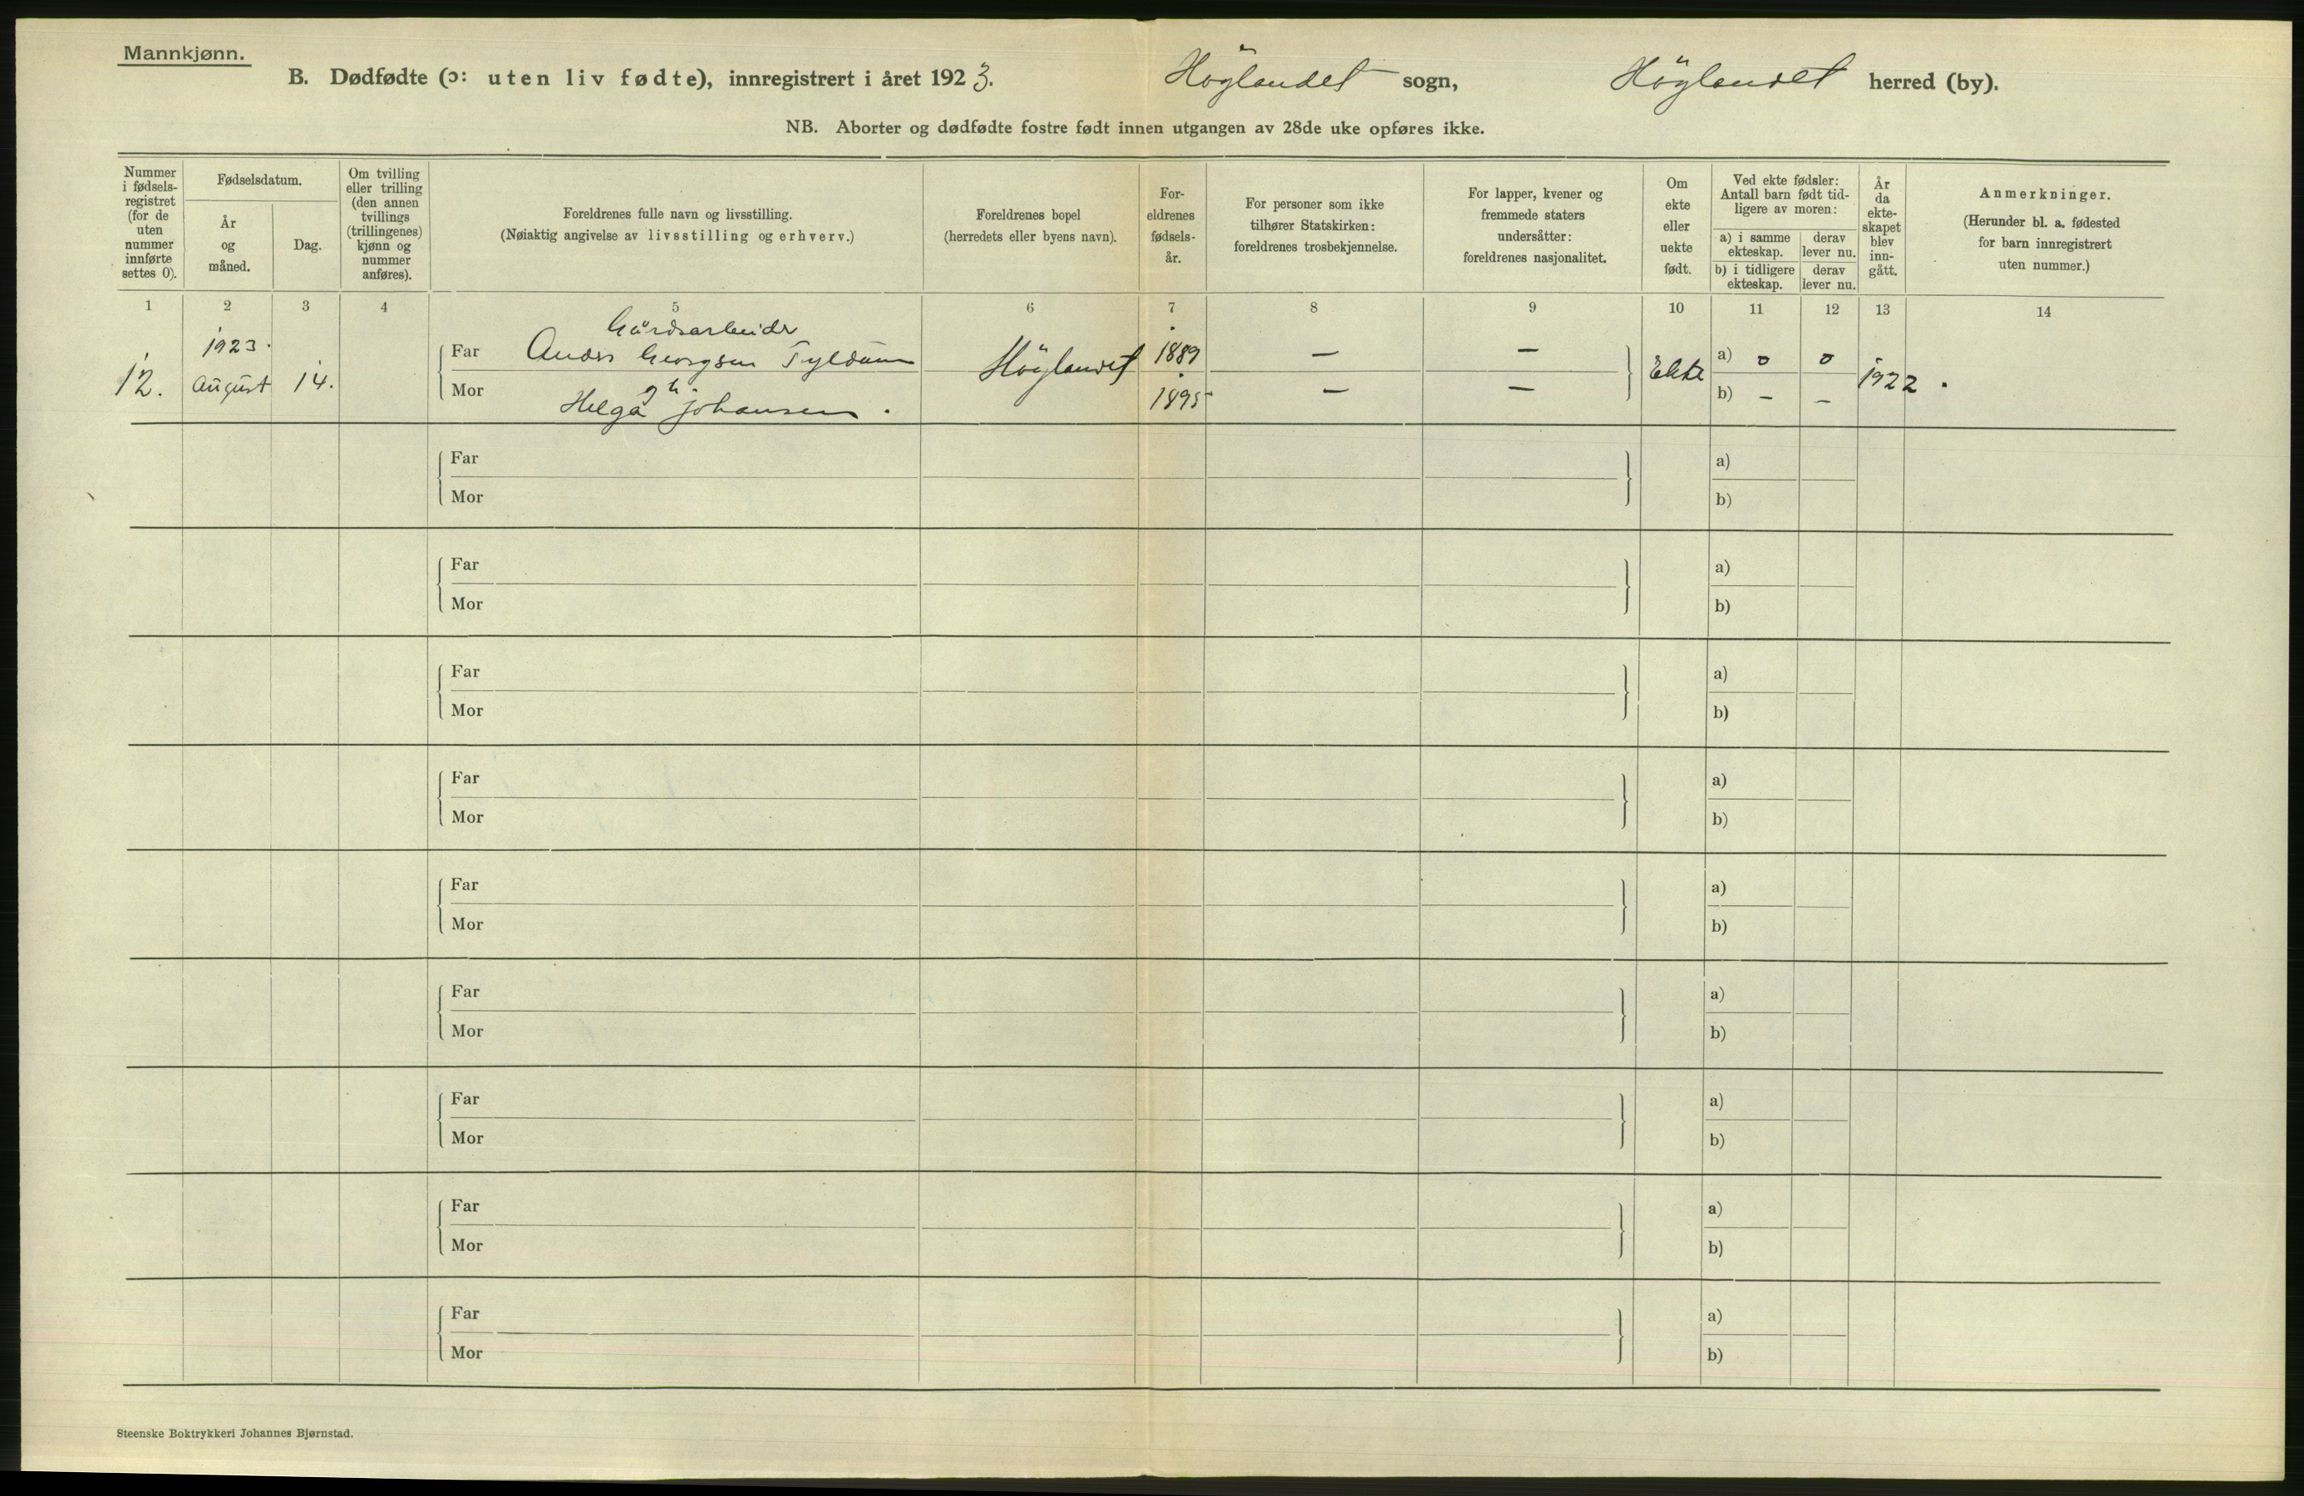 Mannkjønn.
B. Dødfødte (ɔ: uten liv fødte), innregistrert i året 1923. Höylandet sogn, Höylandet herred (by).
NB. Aborter og dødfødte fostre født innen utgangen av 28de uke opføres ikke.
Nummer
i fødsels-
registret
(for de
uten
nummer
innførte
settes 0).
Fødselsdatum.
År
og
måned.
Dag.
Om tvilling
eller trilling
(den annen
tvillings
(trillingenes)
kjønn og
nummer
anføres).
Foreldrenes fulle navn og livsstilling.
(Nøiaktig angivelse av livsstilling og erhverv.)
Foreldrenes bopel
(herredets eller byens navn).
For-
eldrenes
fødsels-
år.
For personer som ikke
tilhører Statskirken:
foreldrenes trosbekjennelse.
For lapper, kvener og
fremmede staters
undersåtter:
foreldrenes nasjonalitet.
Om
ekte
eller
uekte
født.
Ved ekte fødsler:
Antall barn født tid-
ligere av moren:
a) i samme
ekteskap.
derav
lever nu.
b) i tidligere
ekteskap.
derav
lever nu.
År
da
ekte-
skapet
blev
inn-
gått.
Anmerkninger.
(Herunder bl. a. fødested
for barn innregistrert
uten nummer.)
1 2 3 4 5 6 7 8 9 10 11 12 13 14
Gårdsarbeider
1923.
Far Anders Georgsen Tyldum 1889 — — a) 0 0
12. August 14. Höylandet Ekte 1922.
Mor Helga Johansen. 1895 — — b) — —
Far a)
Mor b)
Far a)
Mor b)
Far a)
Mor b)
Far a)
Mor b)
Far a)
Mor b)
Far a)
Mor b)
Far a)
Mor b)
Far a)
Mor b)
Far a)
Mor b)
Steenske Boktrykkeri Johannes Bjørnstad.